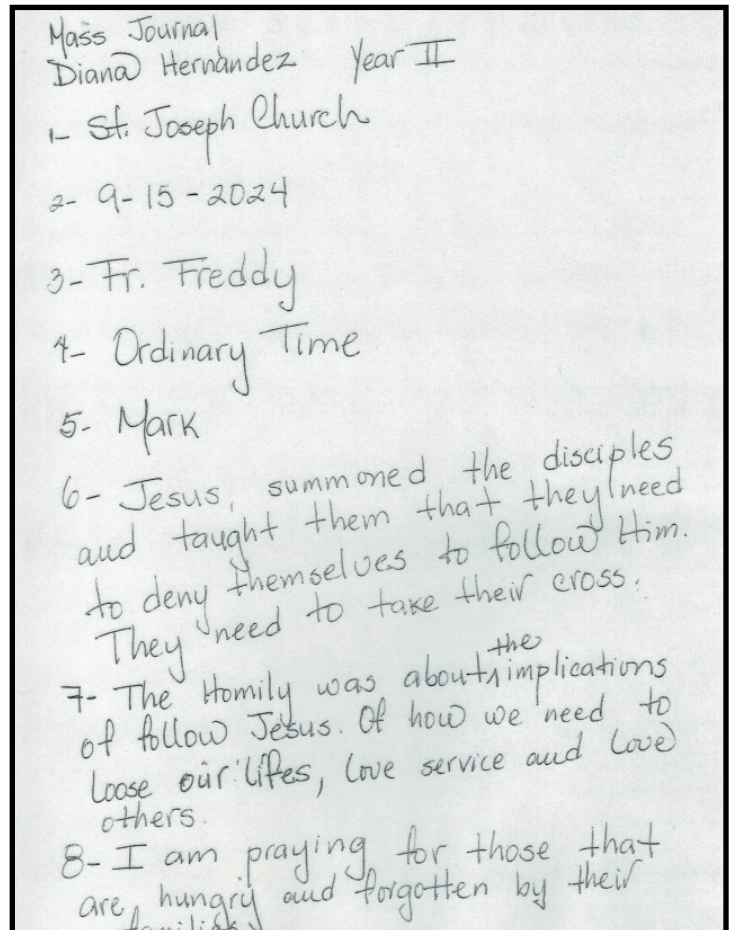 Mass Journal
Diana Hernàndez Year II
1- St. Joseph Church
2- 9-15-2024
3- Fr. Freddy
4- Ordinary Time
5- Mark
6- Jesus, summoned the disciples
and taught them that they need
to deny themselves to follow Him.
They need to take their cross.
7- The Homily was about the implications
of follow Jesus. Of how we need to
loose our lifes, love service and love
others.
8- I am praying for those that
are hungry and forgotten by their
families